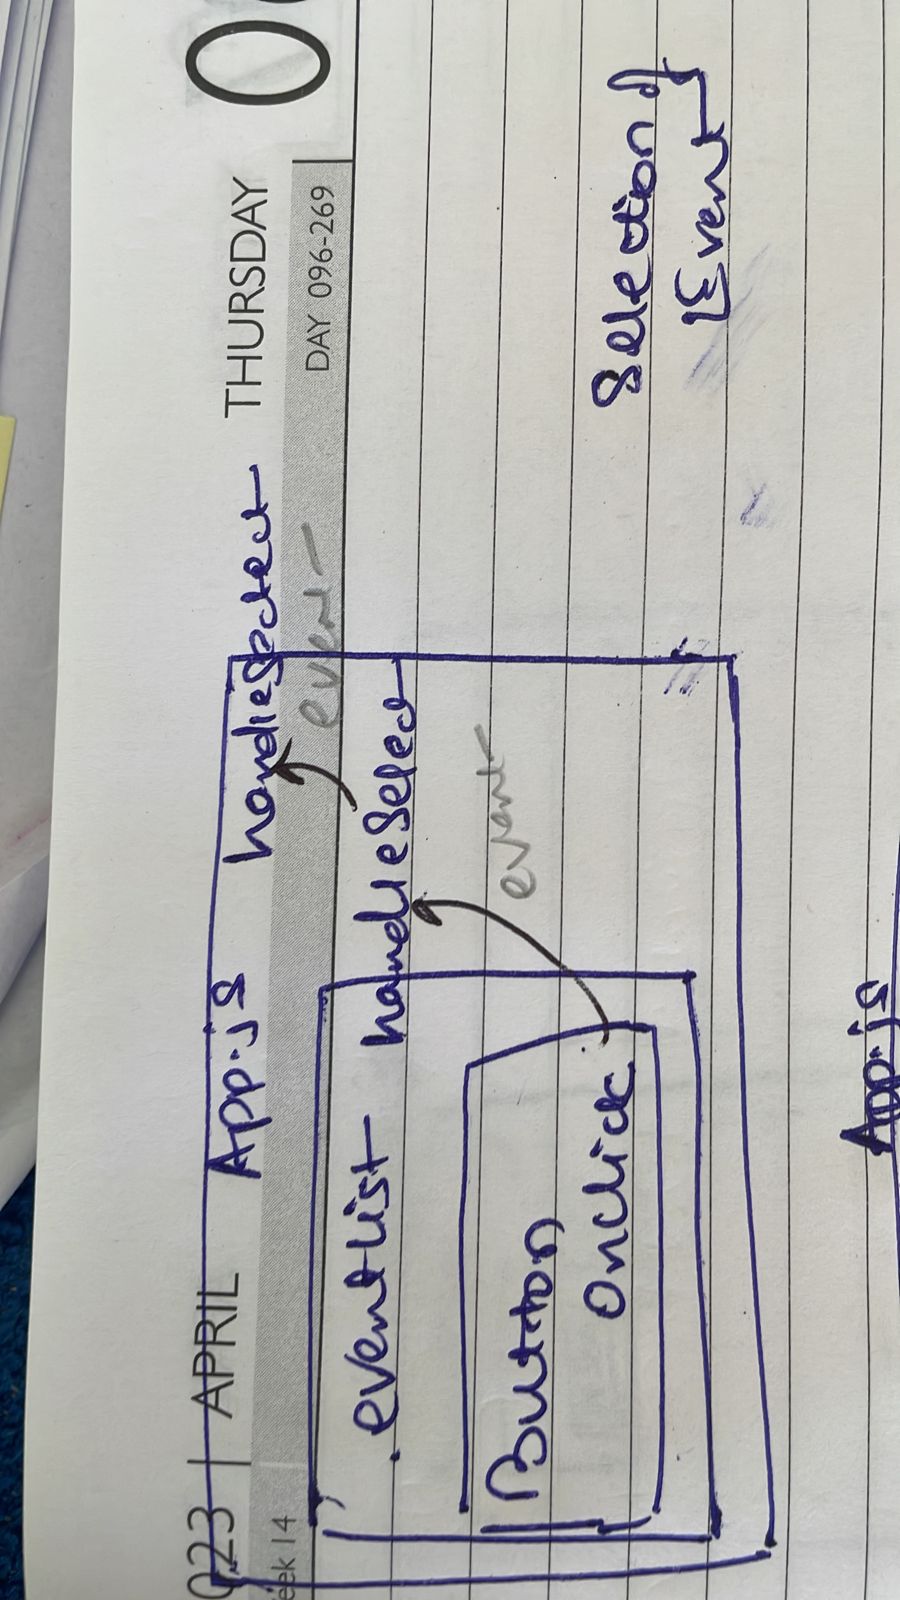 023 | APRIL THURSDAY 0
eek 14 DAY 096-269
App.js handleSelect
event
eventList handleSelect
event
Button
Onclick
Selection of
Event
App.js